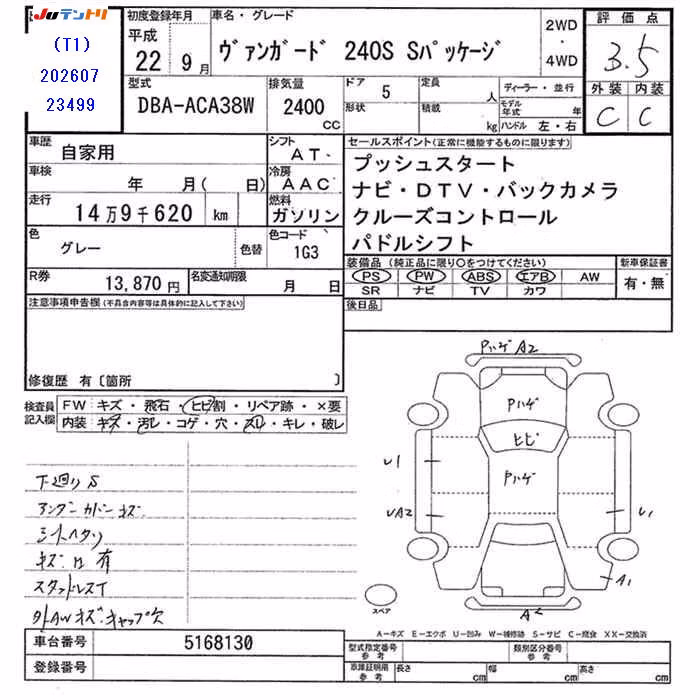 JUテントリ
(T1)
202607
23499
初度登録年月
平成
22年 9月
車名・グレード
ヴァンガード 240S Sパッケージ
2WD
・
4WD
評価点
3.5
外装 内装
C C
型式
DBA-ACA38W
排気量
2400
CC
ドア
5
形状
定員
人
積載
kg
ディーラー・並行
モデル年式
年
ハンドル 左・右
車歴
自家用
シフト
AT
車検
年 月( 日)
冷房
AAC
走行
14万9千620 km
燃料
ガソリン
色
グレー
色替
色コード
1G3
R券
13,870円
名変通知期限
月 日
セールスポイント(正常に機能するものに限ります)
プッシュスタート
ナビ・DTV・バックカメラ
クルーズコントロール
パドルシフト
装備品(純正品に限り○をつけてください)
新車保証書
PS PW ABS エアB AW
SR ナビ TV カワ
有・無
後日品
注意事項申告欄(不具合内容等は具体的に記入して下さい)
修復歴 有〔箇所 〕
検査員
記入欄
FW キズ・飛石・ヒビ割・リペア跡・×要
内装 キズ・汚レ・コゲ・穴・スレ・キレ・破レ
下廻りS
アンダーカバーキズ
シートヘタリ
キズ凹有
スタッドレスT
外AWキズ・キャップ欠
Pハゲ A2
Pハゲ
ヒビ
Pハゲ
U1
UA2
U1
A1
A2
スペア
A-キズ E-エクボ U-凹み W-補修跡 S-サビ C-腐食 XX-交換済
車台番号
5168130
登録番号
型式指定番号
参考
類別区分番号
参考
車庫証明用
参考
長さ
cm
幅
cm
高さ
cm